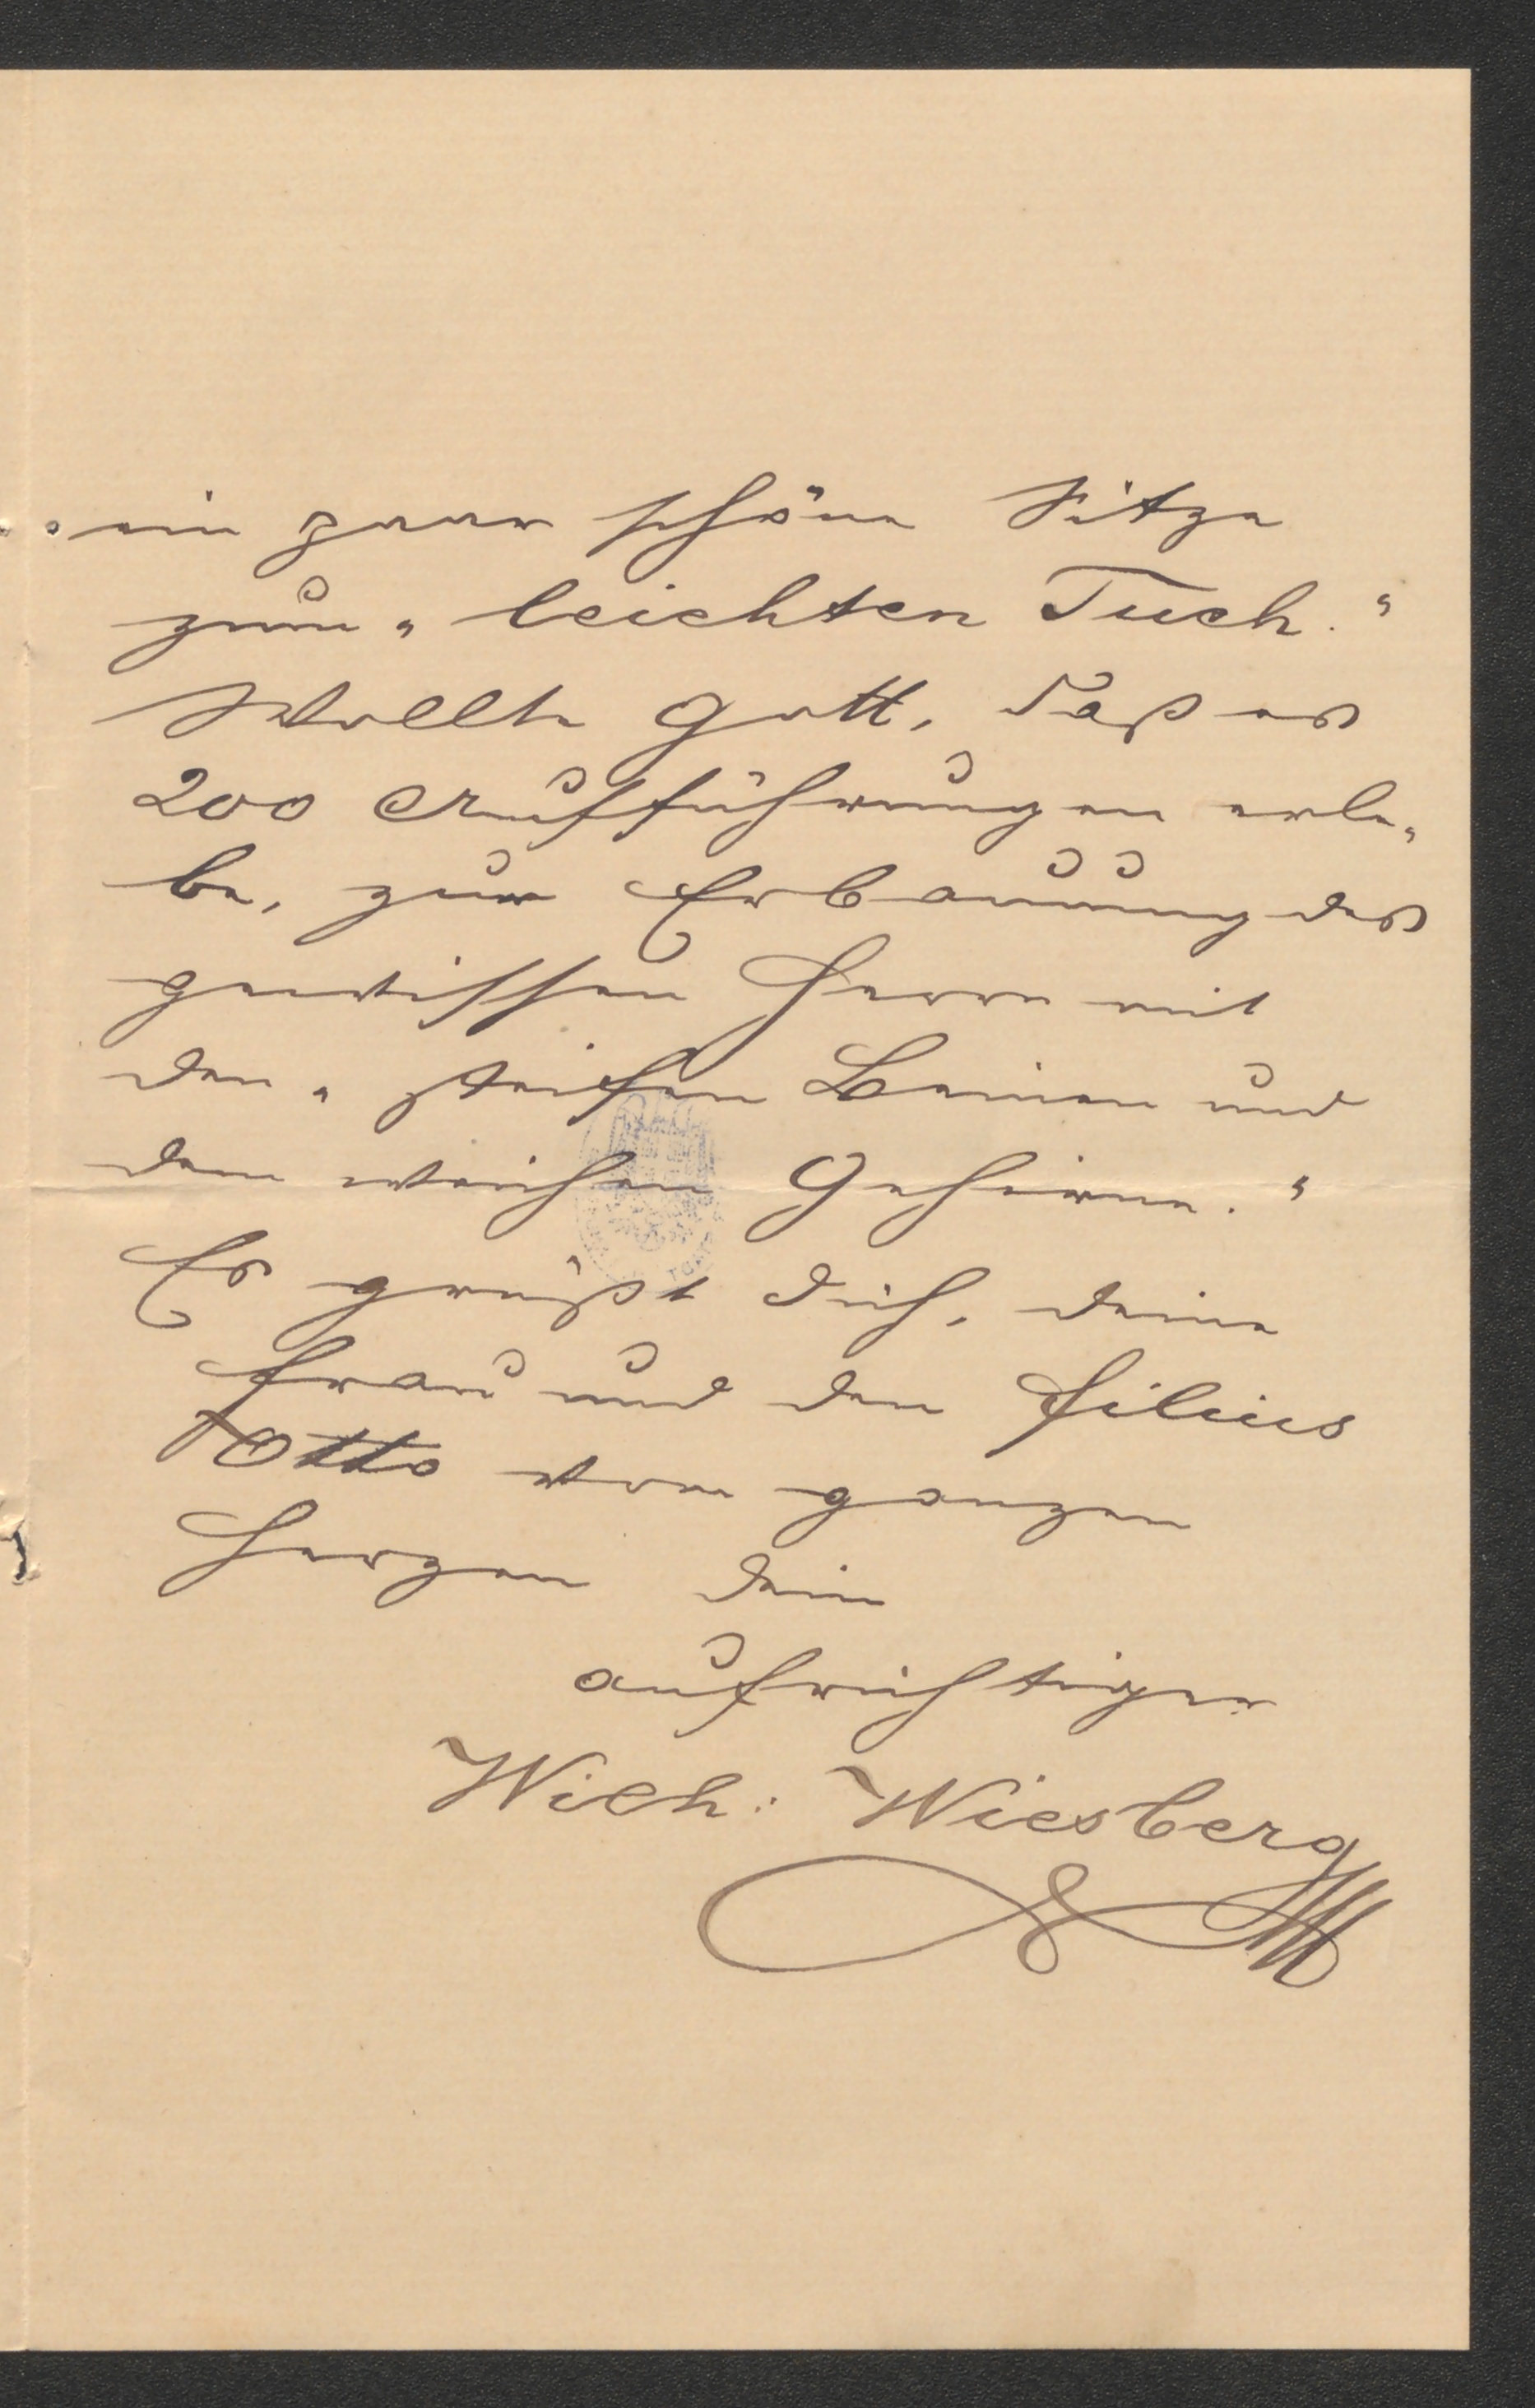 ein paar schöne Sitze
zum „leichten Tuch."
Wollte Gott, daß es
200 Aufführungen erle-
be, zur Erbauung des
gewissen Herrn mit
den „steifen Beinen und
dem weichen Gehirne."
Es grüßt dich, deine
Frau und den Filius
Otto vom ganzen
Herzen dein
aufrichtiger
Wilh: Wiesberg